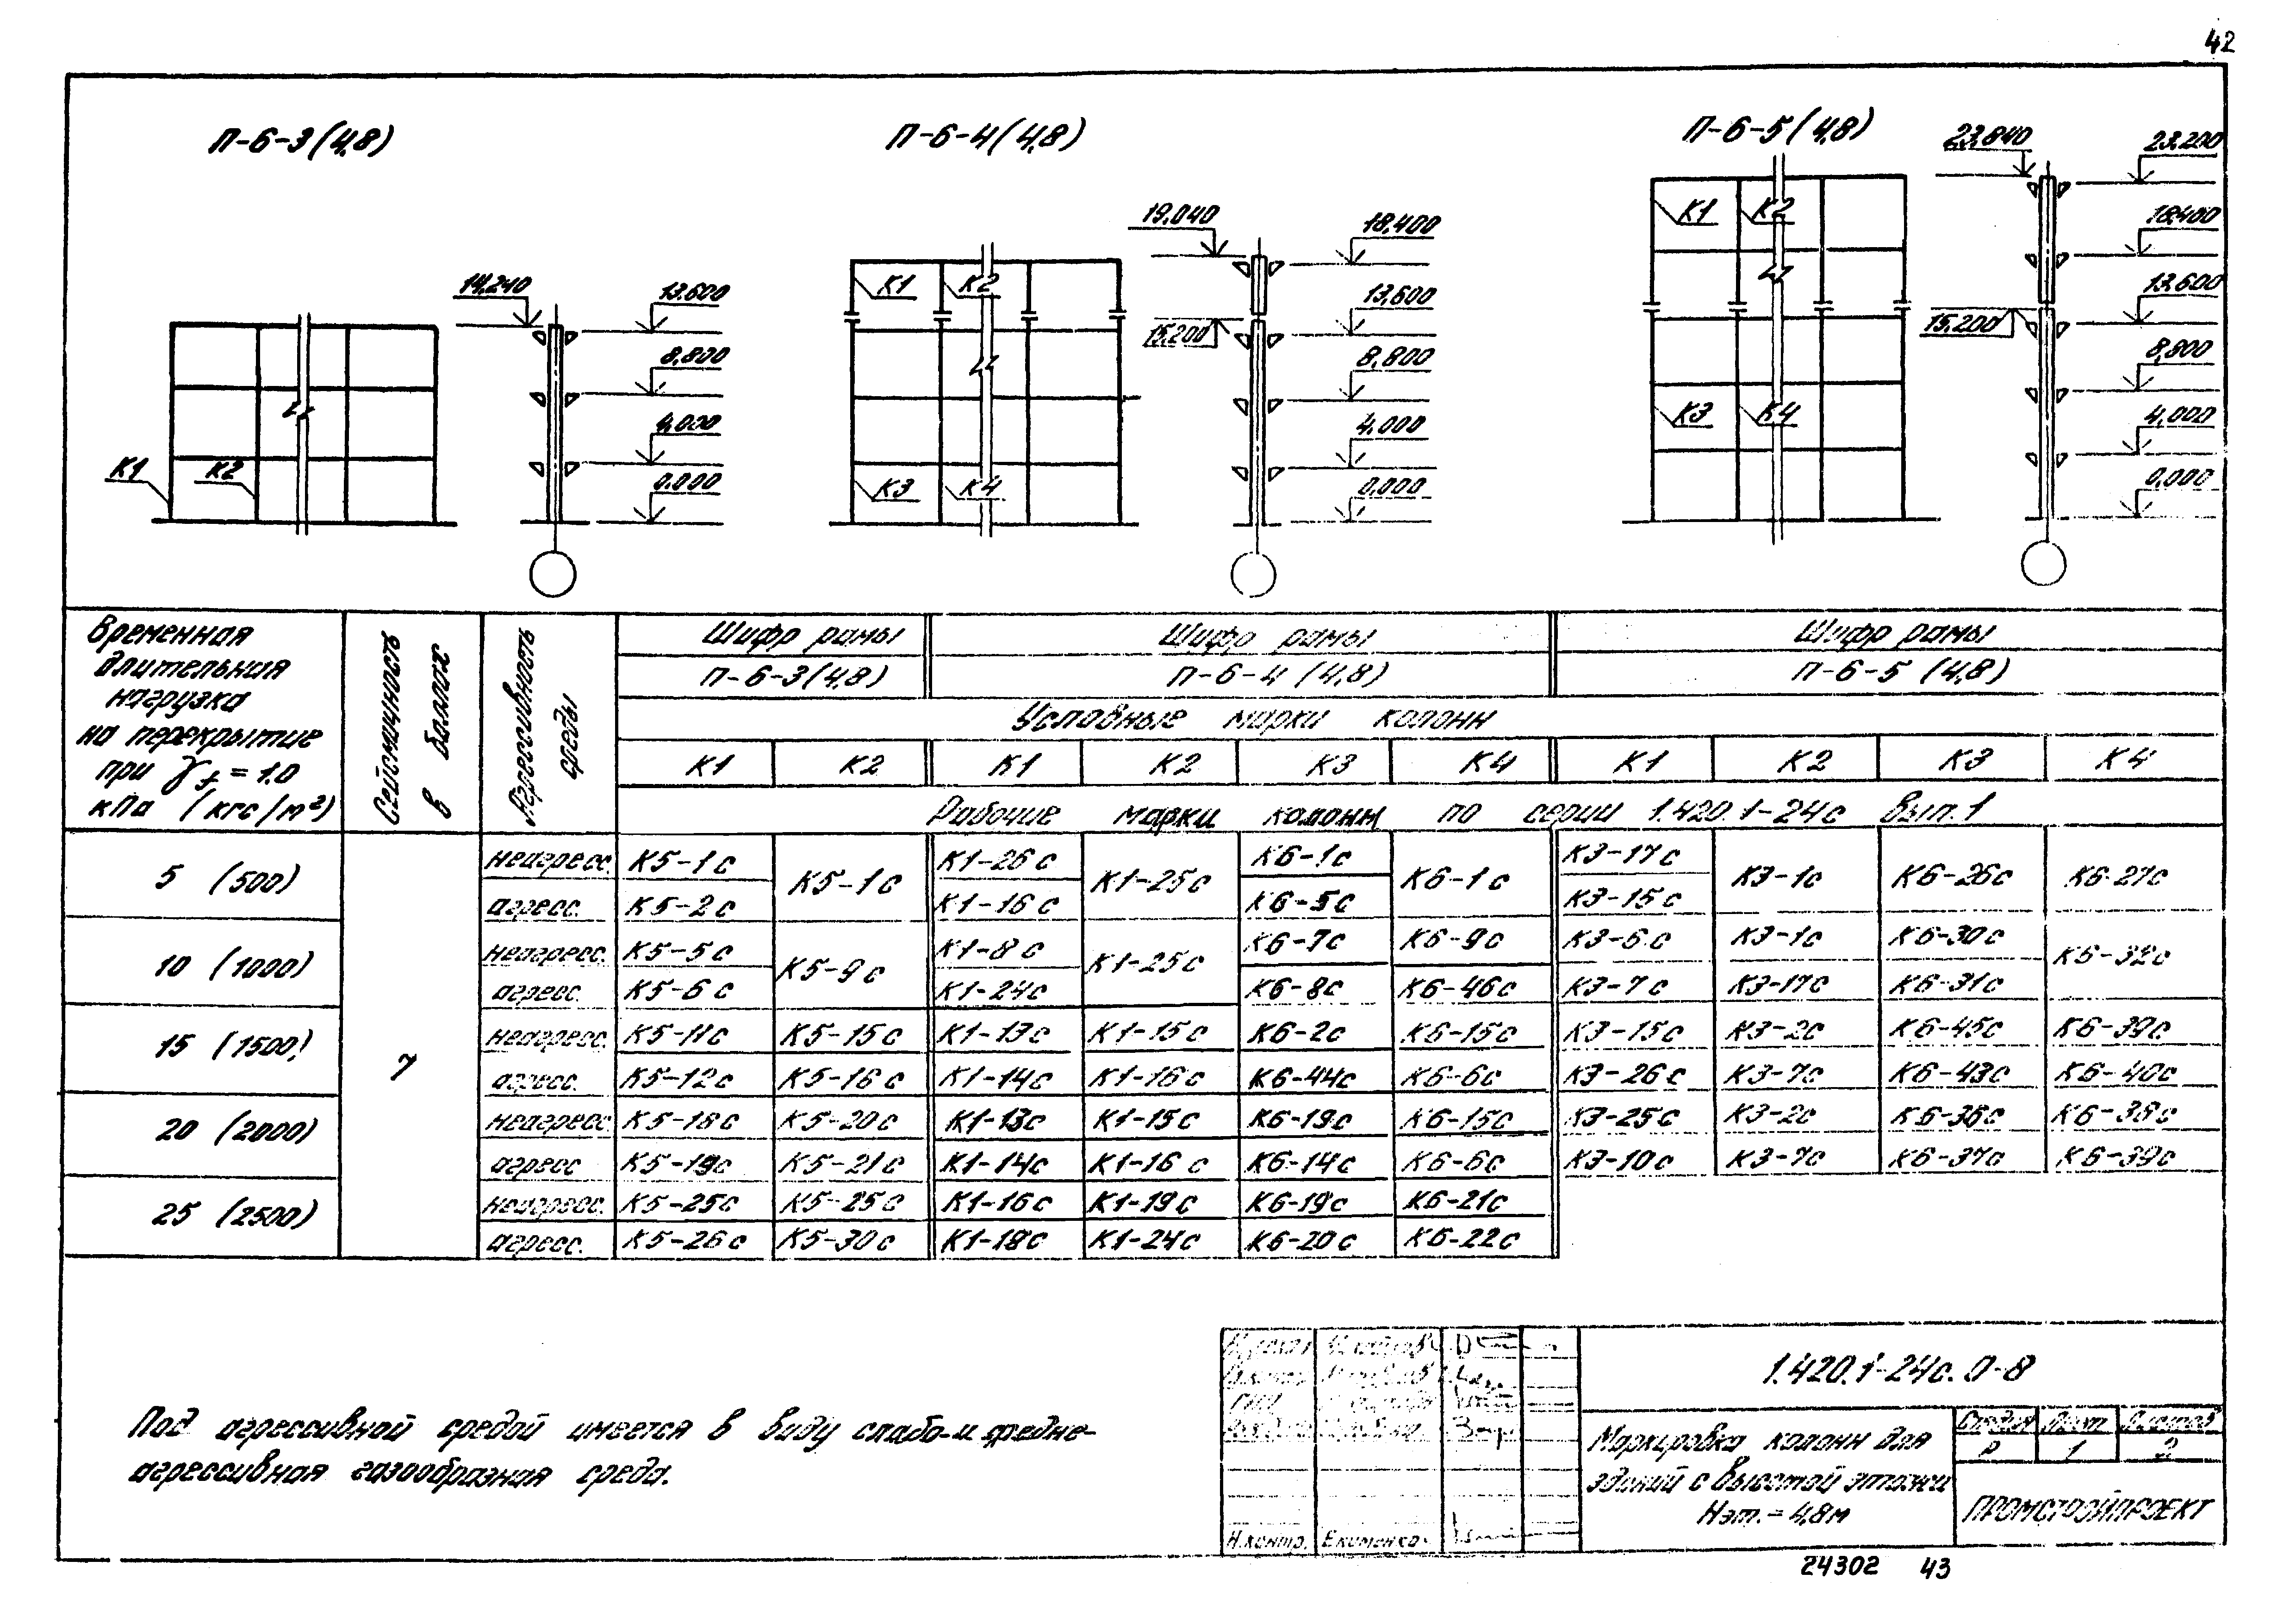 42
П-6-3(4,8)
П-6-4(4,8)
П-6-5(4,8)
14.240
13.600
8.800
4.000
0.000
К1
К2
19.040
18.400
15.200
13.600
8.800
4.000
0.000
К1
К2
К3
К4
23.840
23.200
18.400
13.600
15.200
8.800
4.000
0.000
К1
К2
К3
К4
Временная длительная нагрузка на перекрытие при γf = 1.0 кПа (кгс/м²)
Сейсмичность в баллах
Агрессивность среды
Шифр рамы
Шифр рамы
Шифр рамы
П-6-3(4,8)
П-6-4(4,8)
П-6-5(4,8)
Условные марки колонн
К1 К2 К1 К2 К3 К4 К1 К2 К3 К4
Рабочие марки колонн по серии 1.420.1-24с Вып.1
7
5 (500)
неагресс. К5-1с К5-1с К1-26с К1-25с К6-1с К6-1с К3-17с К3-1с К6-26с К6-27с
агресс. К5-2с К1-16с К6-5с К3-15с
10 (1000)
неагресс. К5-5с К5-9с К1-8с К1-25с К6-7с К6-9с К3-6с К3-1с К6-30с К6-32с
агресс. К5-6с К1-24с К6-8с К6-46с К3-7с К3-17с К6-31с
15 (1500)
неагресс. К5-11с К5-15с К1-13с К1-15с К6-2с К6-15с К3-15с К3-2с К6-45с К6-39с
агресс. К5-12с К5-16с К1-14с К1-16с К6-44с К6-6с К3-26с К3-7с К6-43с К6-40с
20 (2000)
неагресс. К5-18с К5-20с К1-13с К1-15с К6-19с К6-15с К3-25с К3-2с К6-36с К6-38с
агресс К5-19с К5-21с К1-14с К1-16с К6-14с К6-6с К3-10с К3-7с К6-37с К6-39с
25 (2500)
неагресс. К5-25с К5-25с К1-16с К1-19с К6-19с К6-21с
агресс. К5-26с К5-30с К1-18с К1-24с К6-20с К6-22с
Под агрессивной средой имеется в виду слабо-и средне-
агрессивная газообразная среда.
1.420.1-24с.0-8
Маркировка колонн для
зданий с высотой этажи
Нэт.=4,8м
Стадия Лист Листов
Р 1 2
ПРОМСТРОЙПРОЕКТ
ГИП
Н.контр. Екименко
24302 43